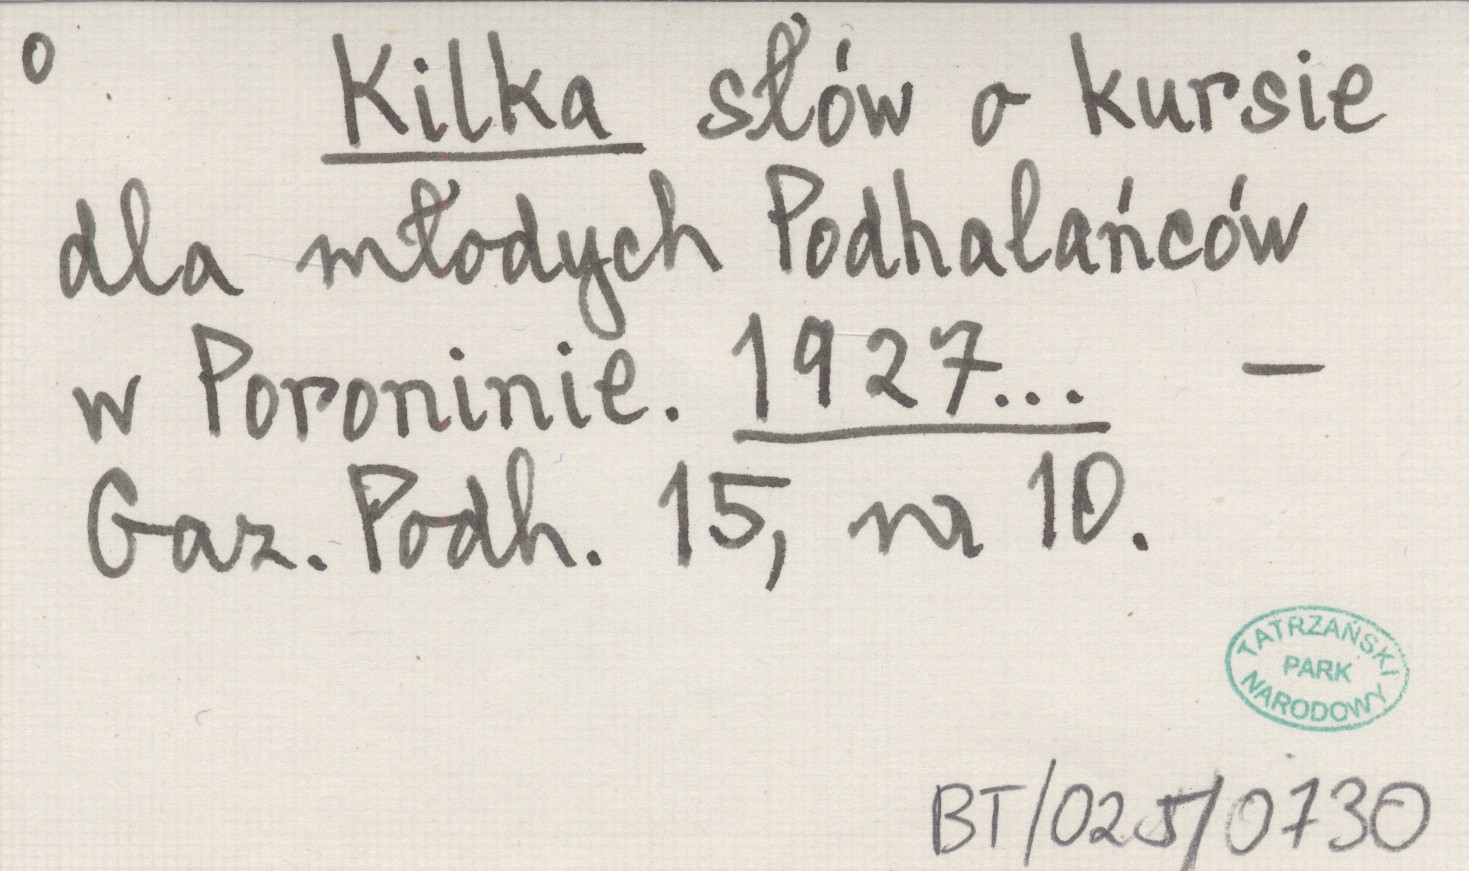 o Kilka słów o kursie
dla młodych Podhalańców
w Poroninie. 1927... —
Gaz. Podh. 15, nr 10.
TATRZAŃSKI
PARK
NARODOWY
BT/025/0730